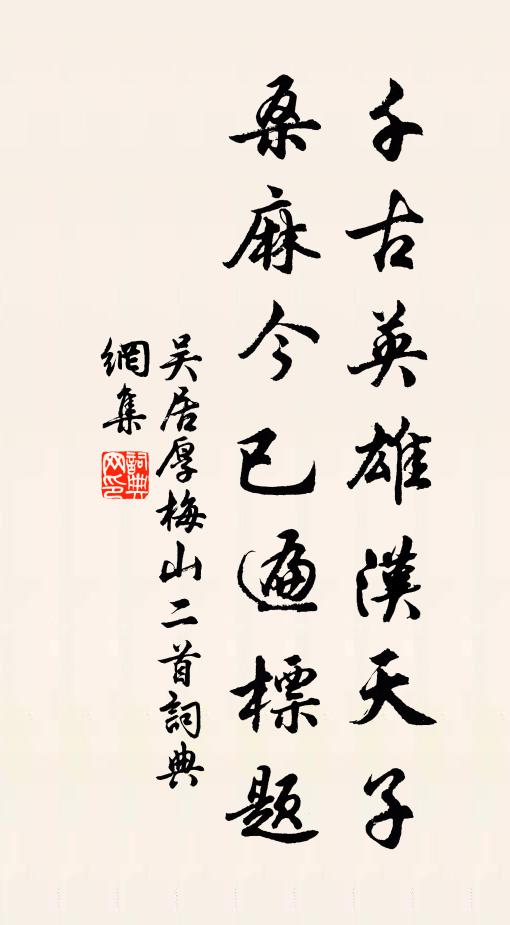 千古英雄漢天子
桑麻今已遍標題
吴居厚梅山二首詞典
網集
詞典網印